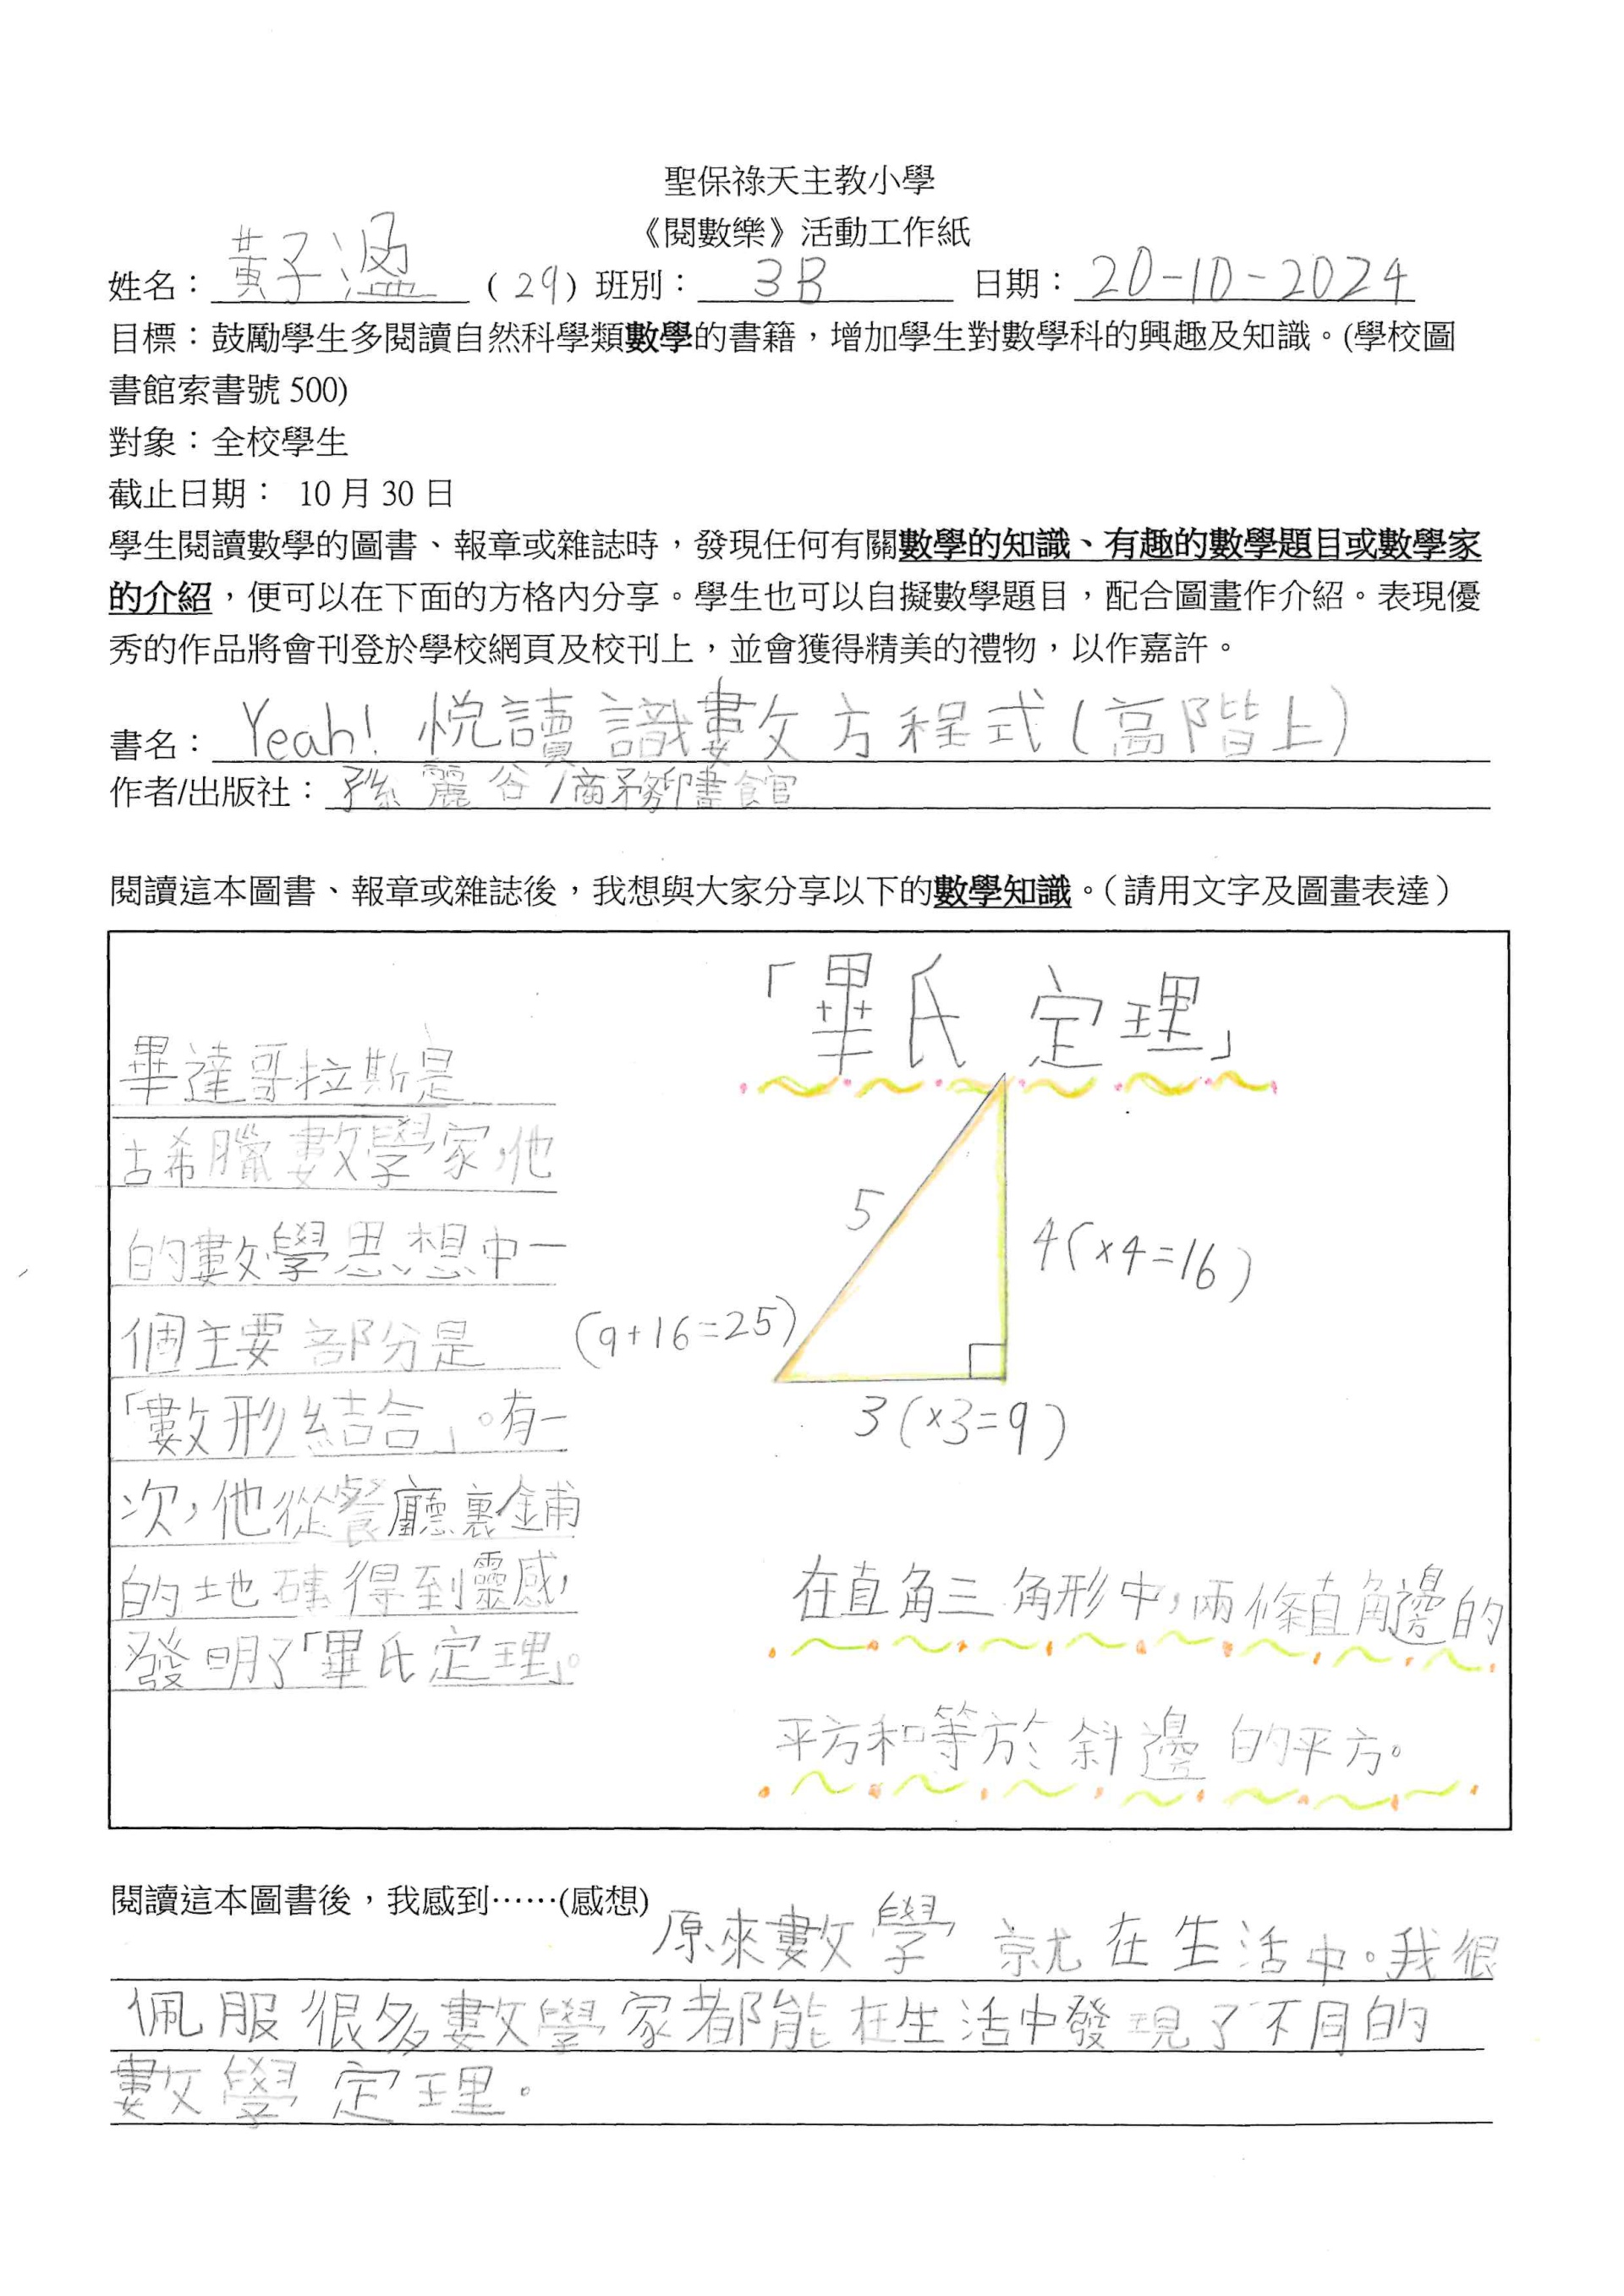 聖保祿天主教小學
《閱數樂》活動工作紙
姓名：黃子溋（29）班別：3B 日期：20-10-2024
目標：鼓勵學生多閱讀自然科學類數學的書籍，增加學生對數學科的興趣及知識。(學校圖
書館索書號 500)
對象：全校學生
截止日期： 10 月 30 日
學生閱讀數學的圖書、報章或雜誌時，發現任何有關數學的知識、有趣的數學題目或數學家
的介紹，便可以在下面的方格內分享。學生也可以自擬數學題目，配合圖畫作介紹。表現優
秀的作品將會刊登於學校網頁及校刊上，並會獲得精美的禮物，以作嘉許。
書名：Yeah! 悅讀識數方程式(高階上)
作者/出版社：孫麗谷/商務印書館
閱讀這本圖書、報章或雜誌後，我想與大家分享以下的數學知識。（請用文字及圖畫表達）
畢達哥拉斯是
古希臘數學家,他
的數學思想中一
個主要部分是
「數形結合」。有一
次,他從餐廳裏鋪
的地磚得到靈感,
發明了「畢氏定理」。
「畢氏定理」
5
4(×4=16)
(9+16=25)
3(×3=9)
在直角三角形中,兩條直角邊的
平方和等於斜邊的平方。
閱讀這本圖書後，我感到……(感想)
原來數學就在生活中。我很
佩服很多數學家都能在生活中發現了不同的
數學定理。